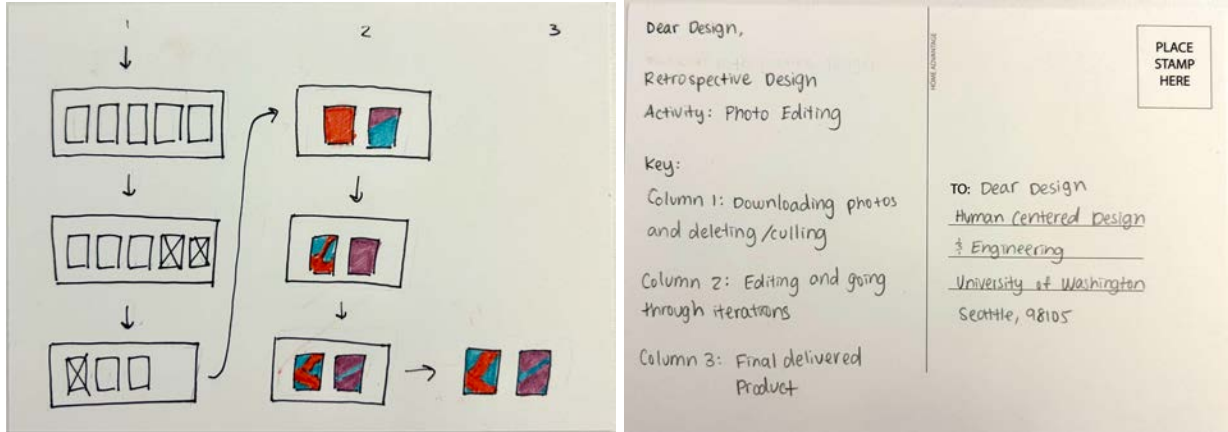 1 2 3
Dear Design,
Retrospective Design
Activity: Photo Editing
Key:
Column 1: Downloading photos
and deleting/culling
Column 2: Editing and going
through iterations
Column 3: Final delivered
Product
HOME ADVANTAGE
PLACE
STAMP
HERE
TO: Dear Design
Human Centered Design
& Engineering
University of Washington
Seattle, 98105